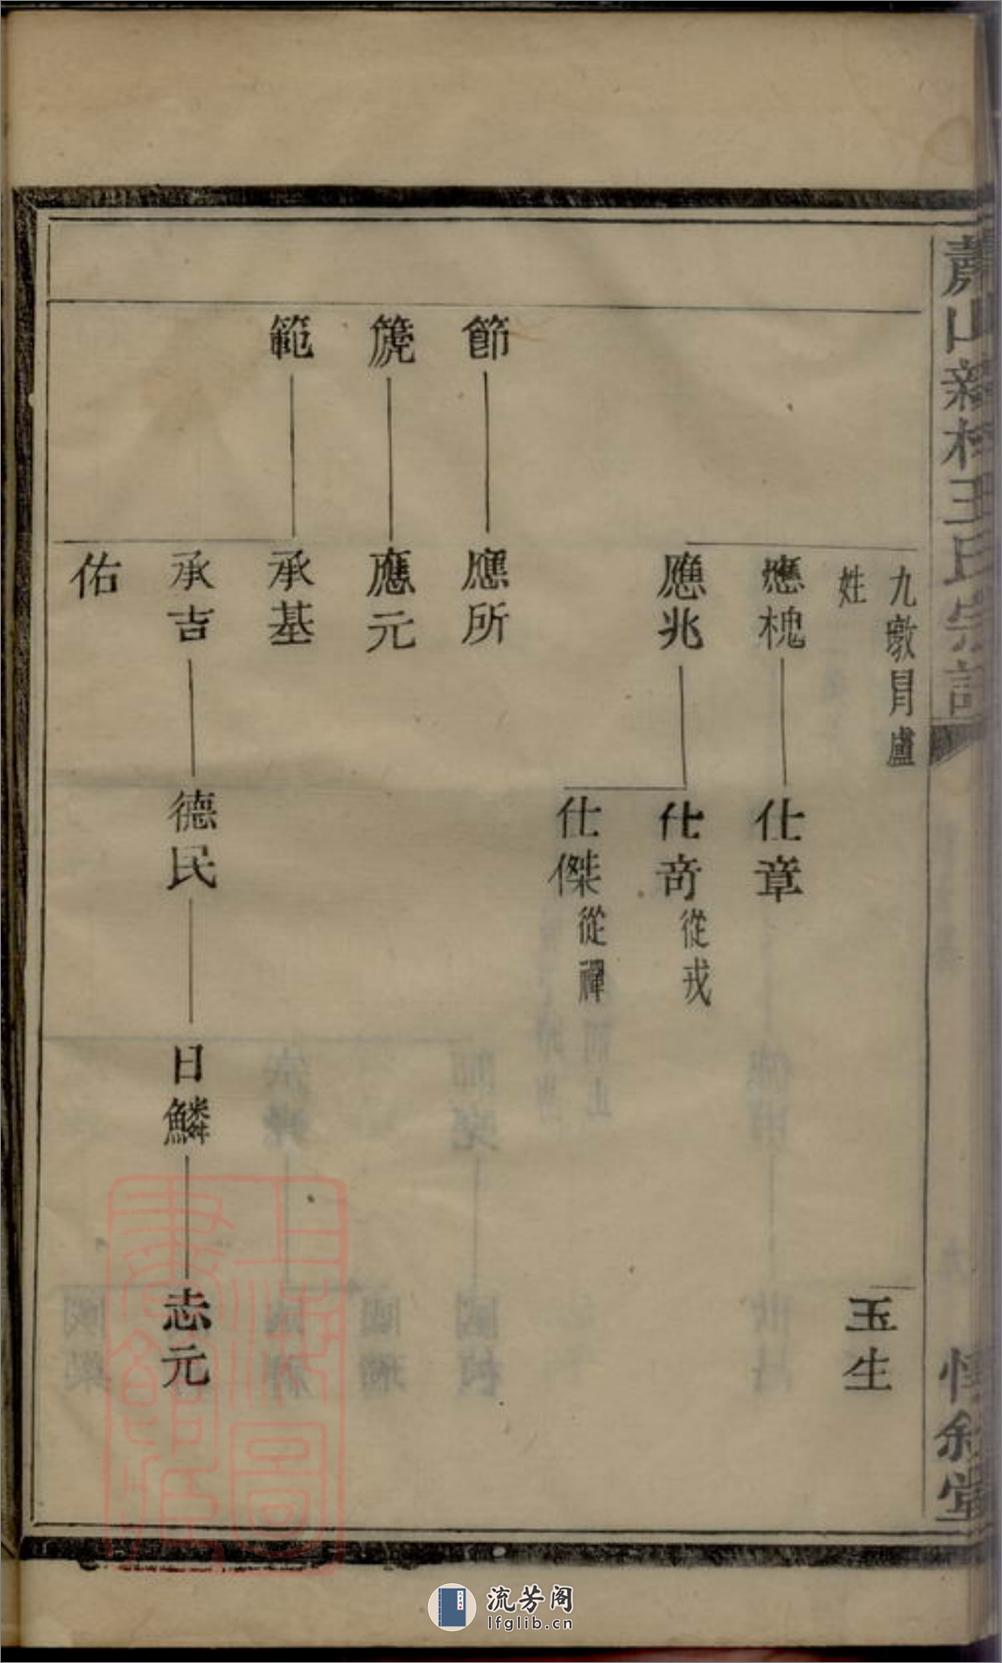 蕭山新村王氏宗譜
惇敘堂
九墩冐盧
姓
玉生
應槐
仕章
應兆
仕竒從戎
仕傑從禪
節
應所
應元
範
承基
承吉
德民
日鱗
志元
佑
上海圖書館藏
流芳阁
lfglib.cn